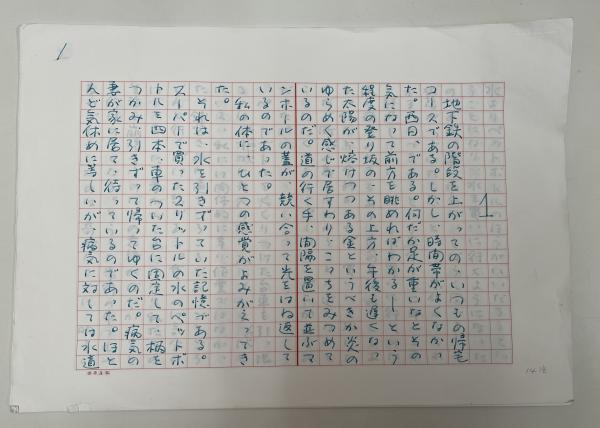 1
1
地下鉄の階段を上がっての、いつもの帰宅
コースである。しかし、時間帯がよくなかっ
た。西日、である。何だか足が重いなとその
気になって前方を眺めればわかる――という
程度の登り坂の、その上方、午後も遅くなっ
た太陽が、熔けつつある金というべきか炎の
ゆらめく感じで居すわり、こっちをみつめて
いるのだ。道の行く手、間隔を置いて並ぶマ
ンホールの蓋が、競い合って光をはね返して
いるのであった。
私の体に、ひとつの感覚がよみがえってき
た。
それは、水を引きずっていた記憶である。
スーパーで買った2リットルの水のペットボ
トルを四本、車のついた台に固定して、柄を
つかみ、引きずって帰ってゆくのだった。病気の
妻が家に居て、待っているのであった。ほと
んど気休めに等しいが、病気に対しては水道